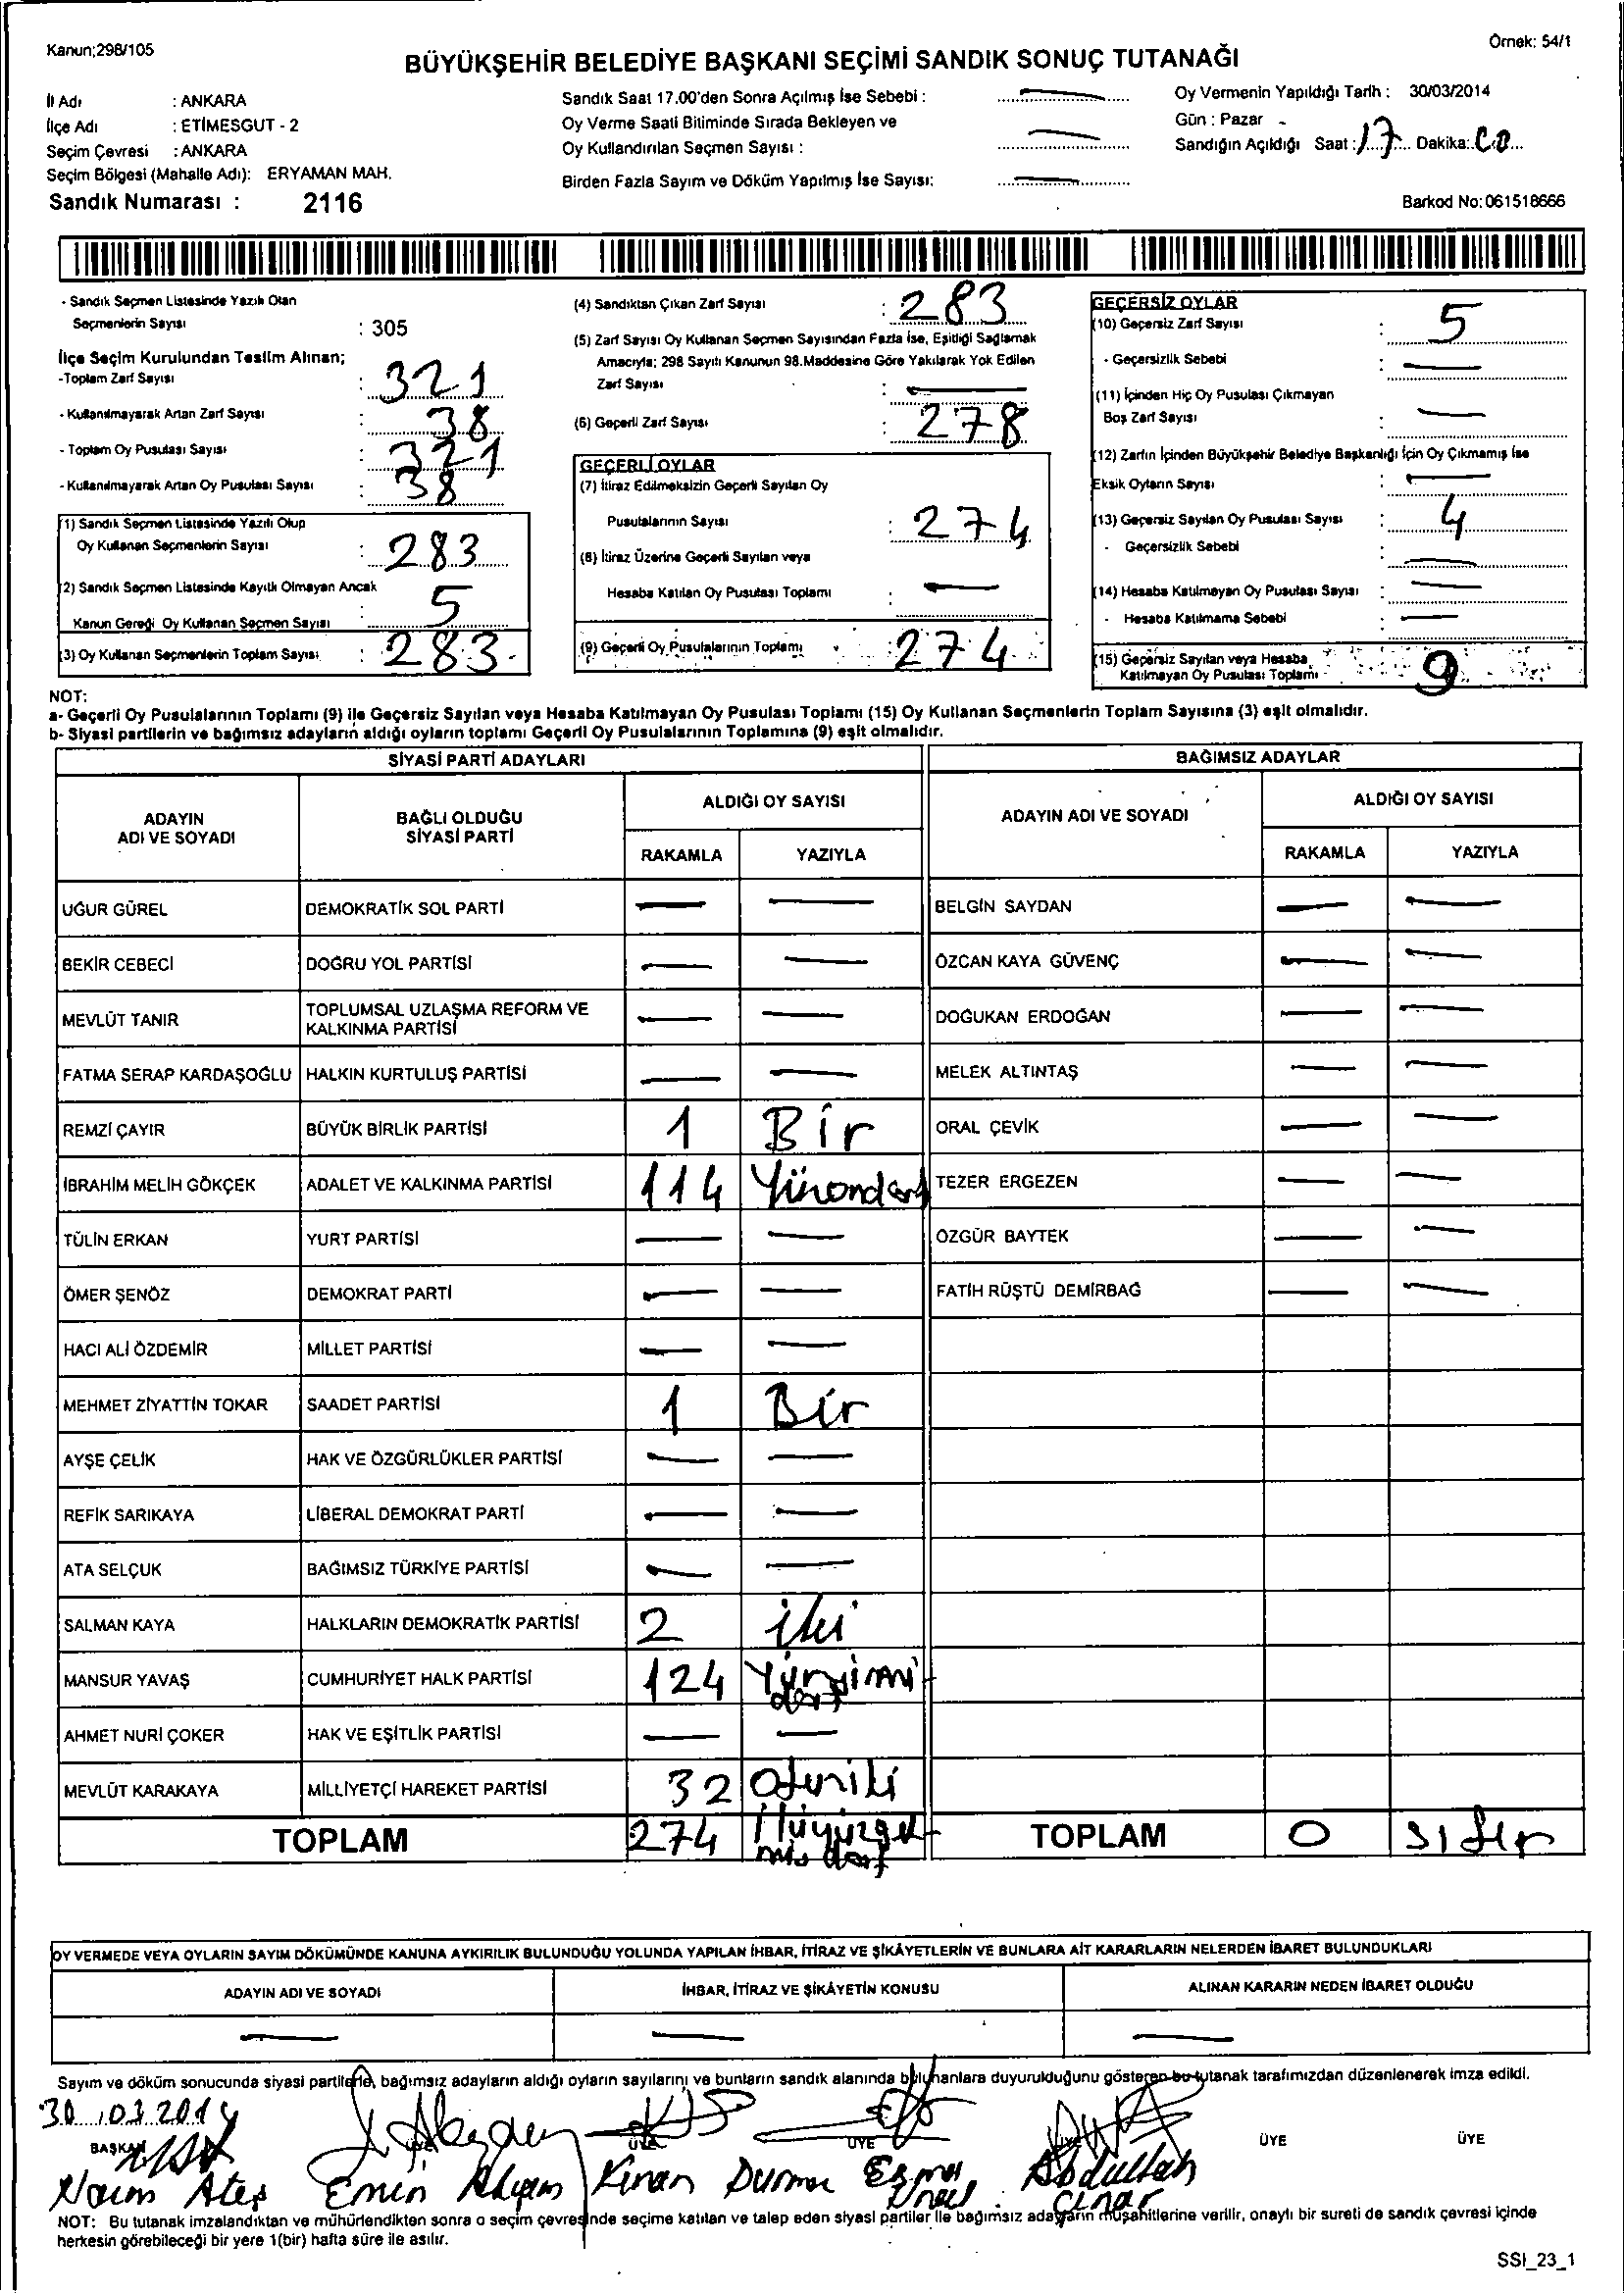 Kanun;298/105
Örnek: 54/1
BÜYÜKŞEHİR BELEDİYE BAŞKANI SEÇİMİ SANDIK SONUÇ TUTANAĞI
İl Adı : ANKARA
İlçe Adı : ETİMESGUT - 2
Seçim Çevresi : ANKARA
Seçim Bölgesi (Mahalle Adı): ERYAMAN MAH.
Sandık Numarası : 2116
Sandık Saat 17.00'den Sonra Açılmış İse Sebebi :
Oy Verme Saati Bitiminde Sırada Bekleyen ve
Oy Kullandırılan Seçmen Sayısı :
Birden Fazla Sayım ve Döküm Yapılmış İse Sayısı:
Oy Vermenin Yapıldığı Tarih : 30/03/2014
Gün : Pazar
Sandığın Açıldığı Saat : 17 Dakika:
Barkod No: 061518666
- Sandık Seçmen Listesinde Yazılı Olan
Seçmenlerin Sayısı : 305
İlçe Seçim Kurulundan Teslim Alınan;
-Toplam Zarf Sayısı : 321
- Kullanılmayarak Artan Zarf Sayısı : 38
- Toplam Oy Pusulası Sayısı : 321
- Kullanılmayarak Artan Oy Pusulası Sayısı : 38
(1) Sandık Seçmen Listesinde Yazılı Olup
Oy Kullanan Seçmenlerin Sayısı : 283
(2) Sandık Seçmen Listesinde Kayıtlı Olmayan Ancak
Kanun Gereği Oy Kullanan Seçmen Sayısı : 5
(3) Oy Kullanan Seçmenlerin Toplam Sayısı : 283
(4) Sandıktan Çıkan Zarf Sayısı : 283
(5) Zarf Sayısı Oy Kullanan Seçmen Sayısından Fazla İse, Eşitliği Sağlamak
Amacıyla; 298 Sayılı Kanunun 98.Maddesine Göre Yakılarak Yok Edilen
Zarf Sayısı :
(6) Geçerli Zarf Sayısı : 278
GEÇERLİ OYLAR
(7) İtiraz Edilmeksizin Geçerli Sayılan Oy
Pusulalarının Sayısı : 274
(8) İtiraz Üzerine Geçerli Sayılan veya
Hesaba Katılan Oy Pusulası Toplamı :
(9) Geçerli Oy Pusulalarının Toplamı : 274
GEÇERSİZ OYLAR
(10) Geçersiz Zarf Sayısı : 5
- Geçersizlik Sebebi :
(11) İçinden Hiç Oy Pusulası Çıkmayan
Boş Zarf Sayısı :
(12) Zarfın İçinden Büyükşehir Belediye Başkanlığı İçin Oy Çıkmamış İse
Eksik Oyların Sayısı :
(13) Geçersiz Sayılan Oy Pusulası Sayısı : 4
- Geçersizlik Sebebi :
(14) Hesaba Katılmayan Oy Pusulası Sayısı :
- Hesaba Katılmama Sebebi :
(15) Geçersiz Sayılan veya Hesaba
Katılmayan Oy Pusulası Toplamı : 9
NOT:
a- Geçerli Oy Pusulalarının Toplamı (9) ile Geçersiz Sayılan veya Hesaba Katılmayan Oy Pusulası Toplamı (15) Oy Kullanan Seçmenlerin Toplam Sayısına (3) eşit olmalıdır.
b- Siyasi partilerin ve bağımsız adayların aldığı oyların toplamı Geçerli Oy Pusulalarının Toplamına (9) eşit olmalıdır.
SİYASİ PARTİ ADAYLARI
BAĞIMSIZ ADAYLAR
ADAYIN ADI VE SOYADI
BAĞLI OLDUĞU SİYASİ PARTİ
ALDIĞI OY SAYISI
RAKAMLA YAZIYLA
ADAYIN ADI VE SOYADI
ALDIĞI OY SAYISI
RAKAMLA YAZIYLA
UĞUR GÜREL DEMOKRATİK SOL PARTİ — — BELGİN SAYDAN — —
BEKİR CEBECİ DOĞRU YOL PARTİSİ — — ÖZCAN KAYA GÜVENÇ — —
MEVLÜT TANIR TOPLUMSAL UZLAŞMA REFORM VE KALKINMA PARTİSİ — — DOĞUKAN ERDOĞAN — —
FATMA SERAP KARDAŞOĞLU HALKIN KURTULUŞ PARTİSİ — — MELEK ALTINTAŞ — —
REMZİ ÇAYIR BÜYÜK BİRLİK PARTİSİ 1 Bir ORAL ÇEVİK — —
İBRAHİM MELİH GÖKÇEK ADALET VE KALKINMA PARTİSİ 114 TEZER ERGEZEN — —
TÜLİN ERKAN YURT PARTİSİ — — ÖZGÜR BAYTEK — —
ÖMER ŞENÖZ DEMOKRAT PARTİ — — FATİH RÜŞTÜ DEMİRBAĞ — —
HACI ALİ ÖZDEMİR MİLLET PARTİSİ — —
MEHMET ZİYATTİN TOKAR SAADET PARTİSİ 1 Bir
AYŞE ÇELİK HAK VE ÖZGÜRLÜKLER PARTİSİ — —
REFİK SARIKAYA LİBERAL DEMOKRAT PARTİ — —
ATA SELÇUK BAĞIMSIZ TÜRKİYE PARTİSİ — —
SALMAN KAYA HALKLARIN DEMOKRATİK PARTİSİ 2 iki
MANSUR YAVAŞ CUMHURİYET HALK PARTİSİ 124
AHMET NURİ ÇOKER HAK VE EŞİTLİK PARTİSİ — —
MEVLÜT KARAKAYA MİLLİYETÇİ HAREKET PARTİSİ 32
TOPLAM 274 TOPLAM 0 sıfır
OY VERMEDE VEYA OYLARIN SAYIM DÖKÜMÜNDE KANUNA AYKIRILIK BULUNDUĞU YOLUNDA YAPILAN İHBAR, İTİRAZ VE ŞİKÂYETLERİN VE BUNLARA AİT KARARLARIN NELERDEN İBARET BULUNDUKLARI
ADAYIN ADI VE SOYADI İHBAR, İTİRAZ VE ŞİKÂYETİN KONUSU ALINAN KARARIN NEDEN İBARET OLDUĞU
— — —
Sayım ve döküm sonucunda siyasi partilerle, bağımsız adayların aldığı oyların sayılarını ve bunların sandık alanında bulunanlara duyurulduğunu gösteren bu tutanak tarafımızdan düzenlenerek imza edildi.
30.03.2014
BAŞKAN ÜYE ÜYE ÜYE ÜYE ÜYE ÜYE
Naim Ateş Emin Kenan Abdullah
Çınar
NOT: Bu tutanak imzalandıktan ve mühürlendikten sonra o seçim çevresinde seçime katılan ve talep eden siyasi partiler ile bağımsız adayların müşahitlerine verilir, onaylı bir sureti de sandık çevresi içinde
herkesin görebileceği bir yere 1(bir) hafta süre ile asılır.
SSI_23_1